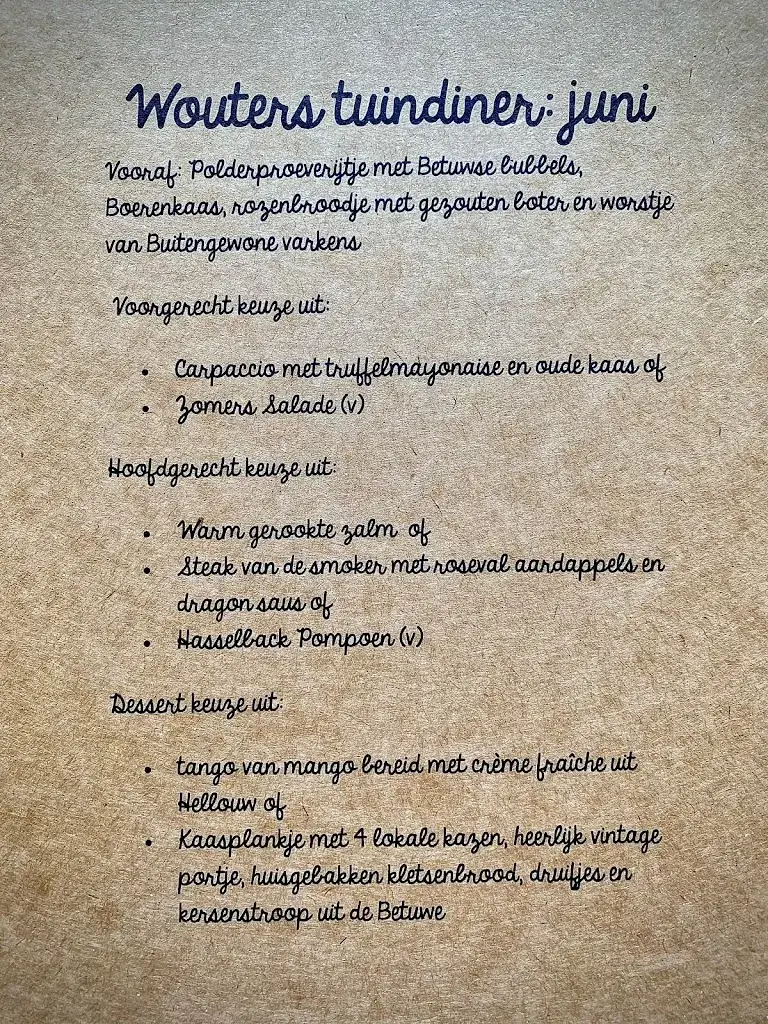 Wouters tuindiner: juni
Vooraf: Polderproeverijtje met Betuwse bubbels,
Boerenkaas, rozenbroodje met gezouten boter en worstje
van Buitengewone varkens
Voorgerecht keuze uit:
• Carpaccio met truffelmayonaise en oude kaas of
• Zomers Salade (v)
Hoofdgerecht keuze uit:
• Warm gerookte zalm of
• Steak van de smoker met roseval aardappels en
dragon saus of
• Hasselback Pompoen (v)
Dessert keuze uit:
• tango van mango bereid met crème fraîche uit
Hellouw of
• Kaasplankje met 4 lokale kazen, heerlijk vintage
portje, huisgebakken kletsenbrood, druifjes en
kersenstroop uit de Betuwe